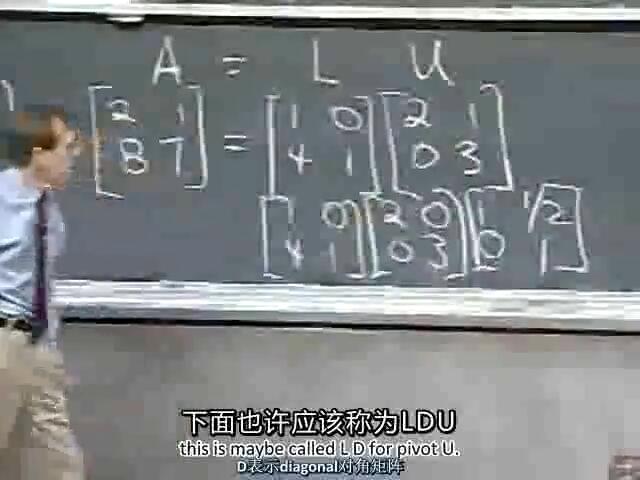 A = L U
[2 1] = [1 0] [2 1]
[8 7] [4 1] [0 3]
[1 0] [2 0] [1 1/2]
[4 1] [0 3] [0 1]
下面也许应该称为LDU
this is maybe called L D for pivot U.
D表示diagonal对角矩阵